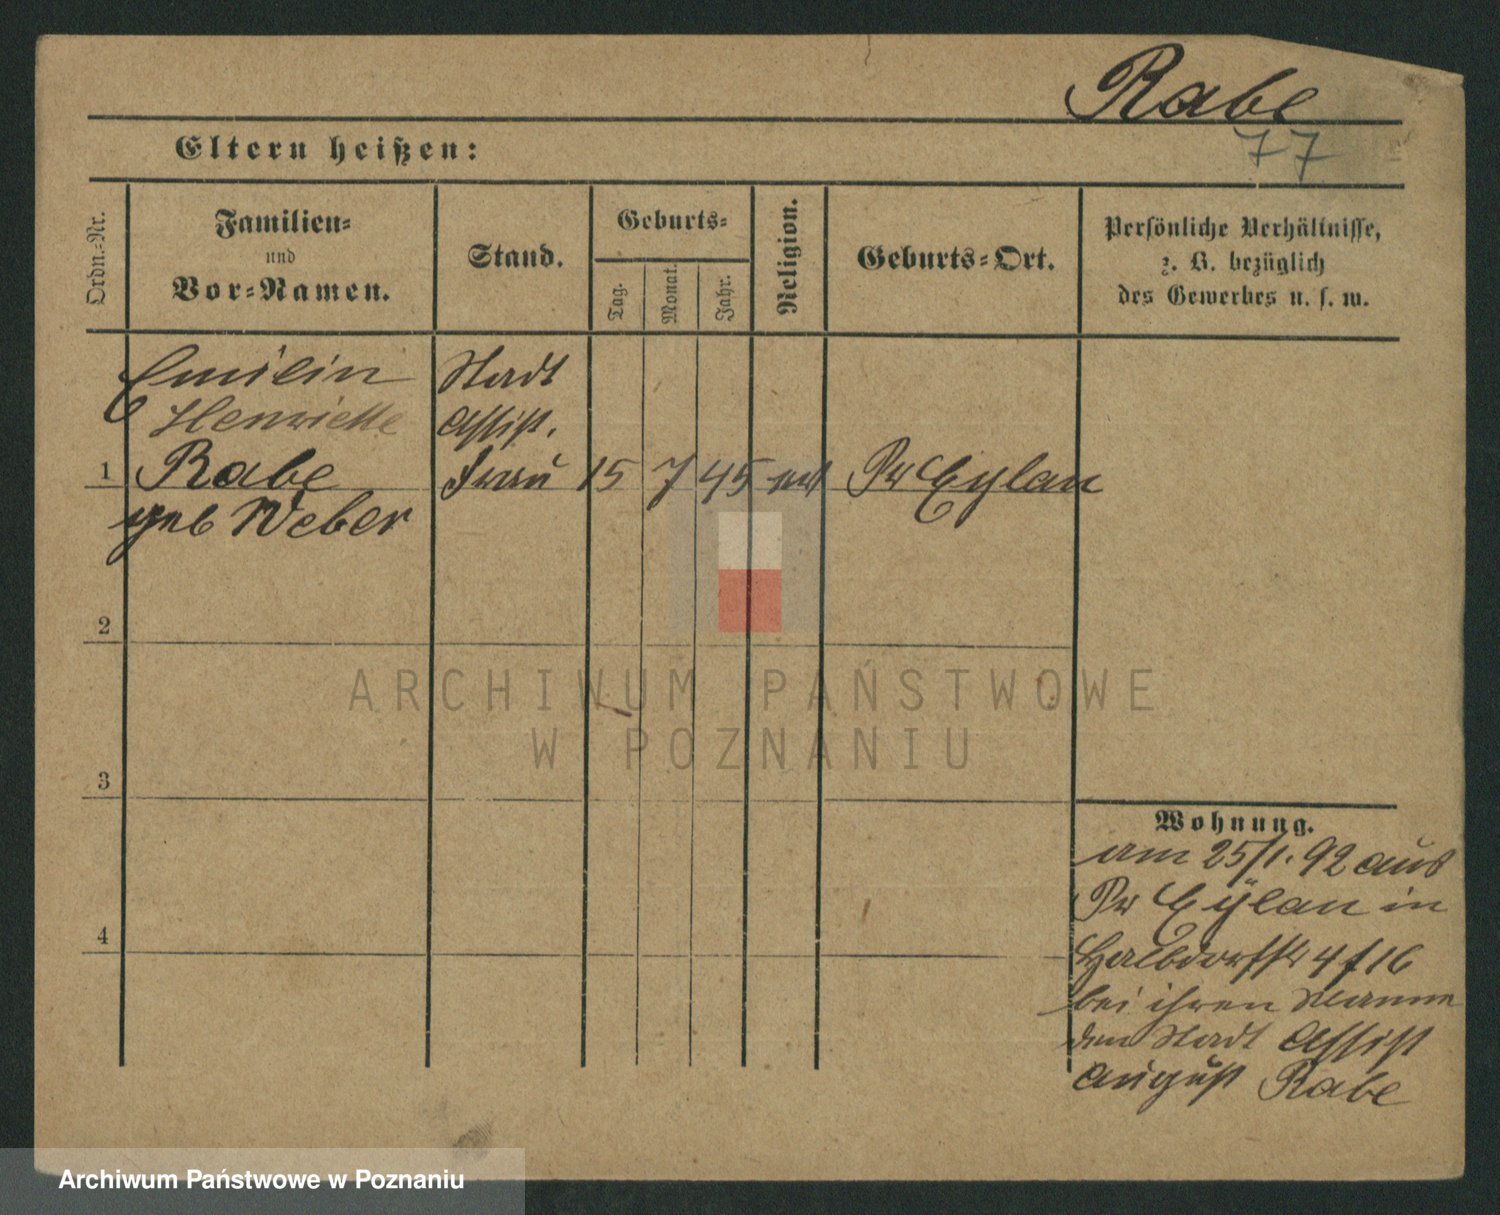 Rabe
77
Eltern heißen:
Ordn.-Nr.
Familien-
und
Vor-Namen.
Stand.
Geburts-
Tag.
Monat.
Jahr.
Religion.
Geburts-Ort.
Persönliche Verhältnisse,
z. B. bezüglich
des Gewerbes u. s. w.
Emilie Stadt
Henriette Assist.
1 Rabe Frau 15 7 45 ev Pr Eylau
geb Weber
2
ARCHIWUM PAŃSTWOWE
W POZNANIU
3
4
Wohnung.
am 25/1. 92 aus
Pr Eylau in
Halbdorfstr 4 f 16
bei ihren Manne
den Stadt Assist
August Rabe
Archiwum Państwowe w Poznaniu